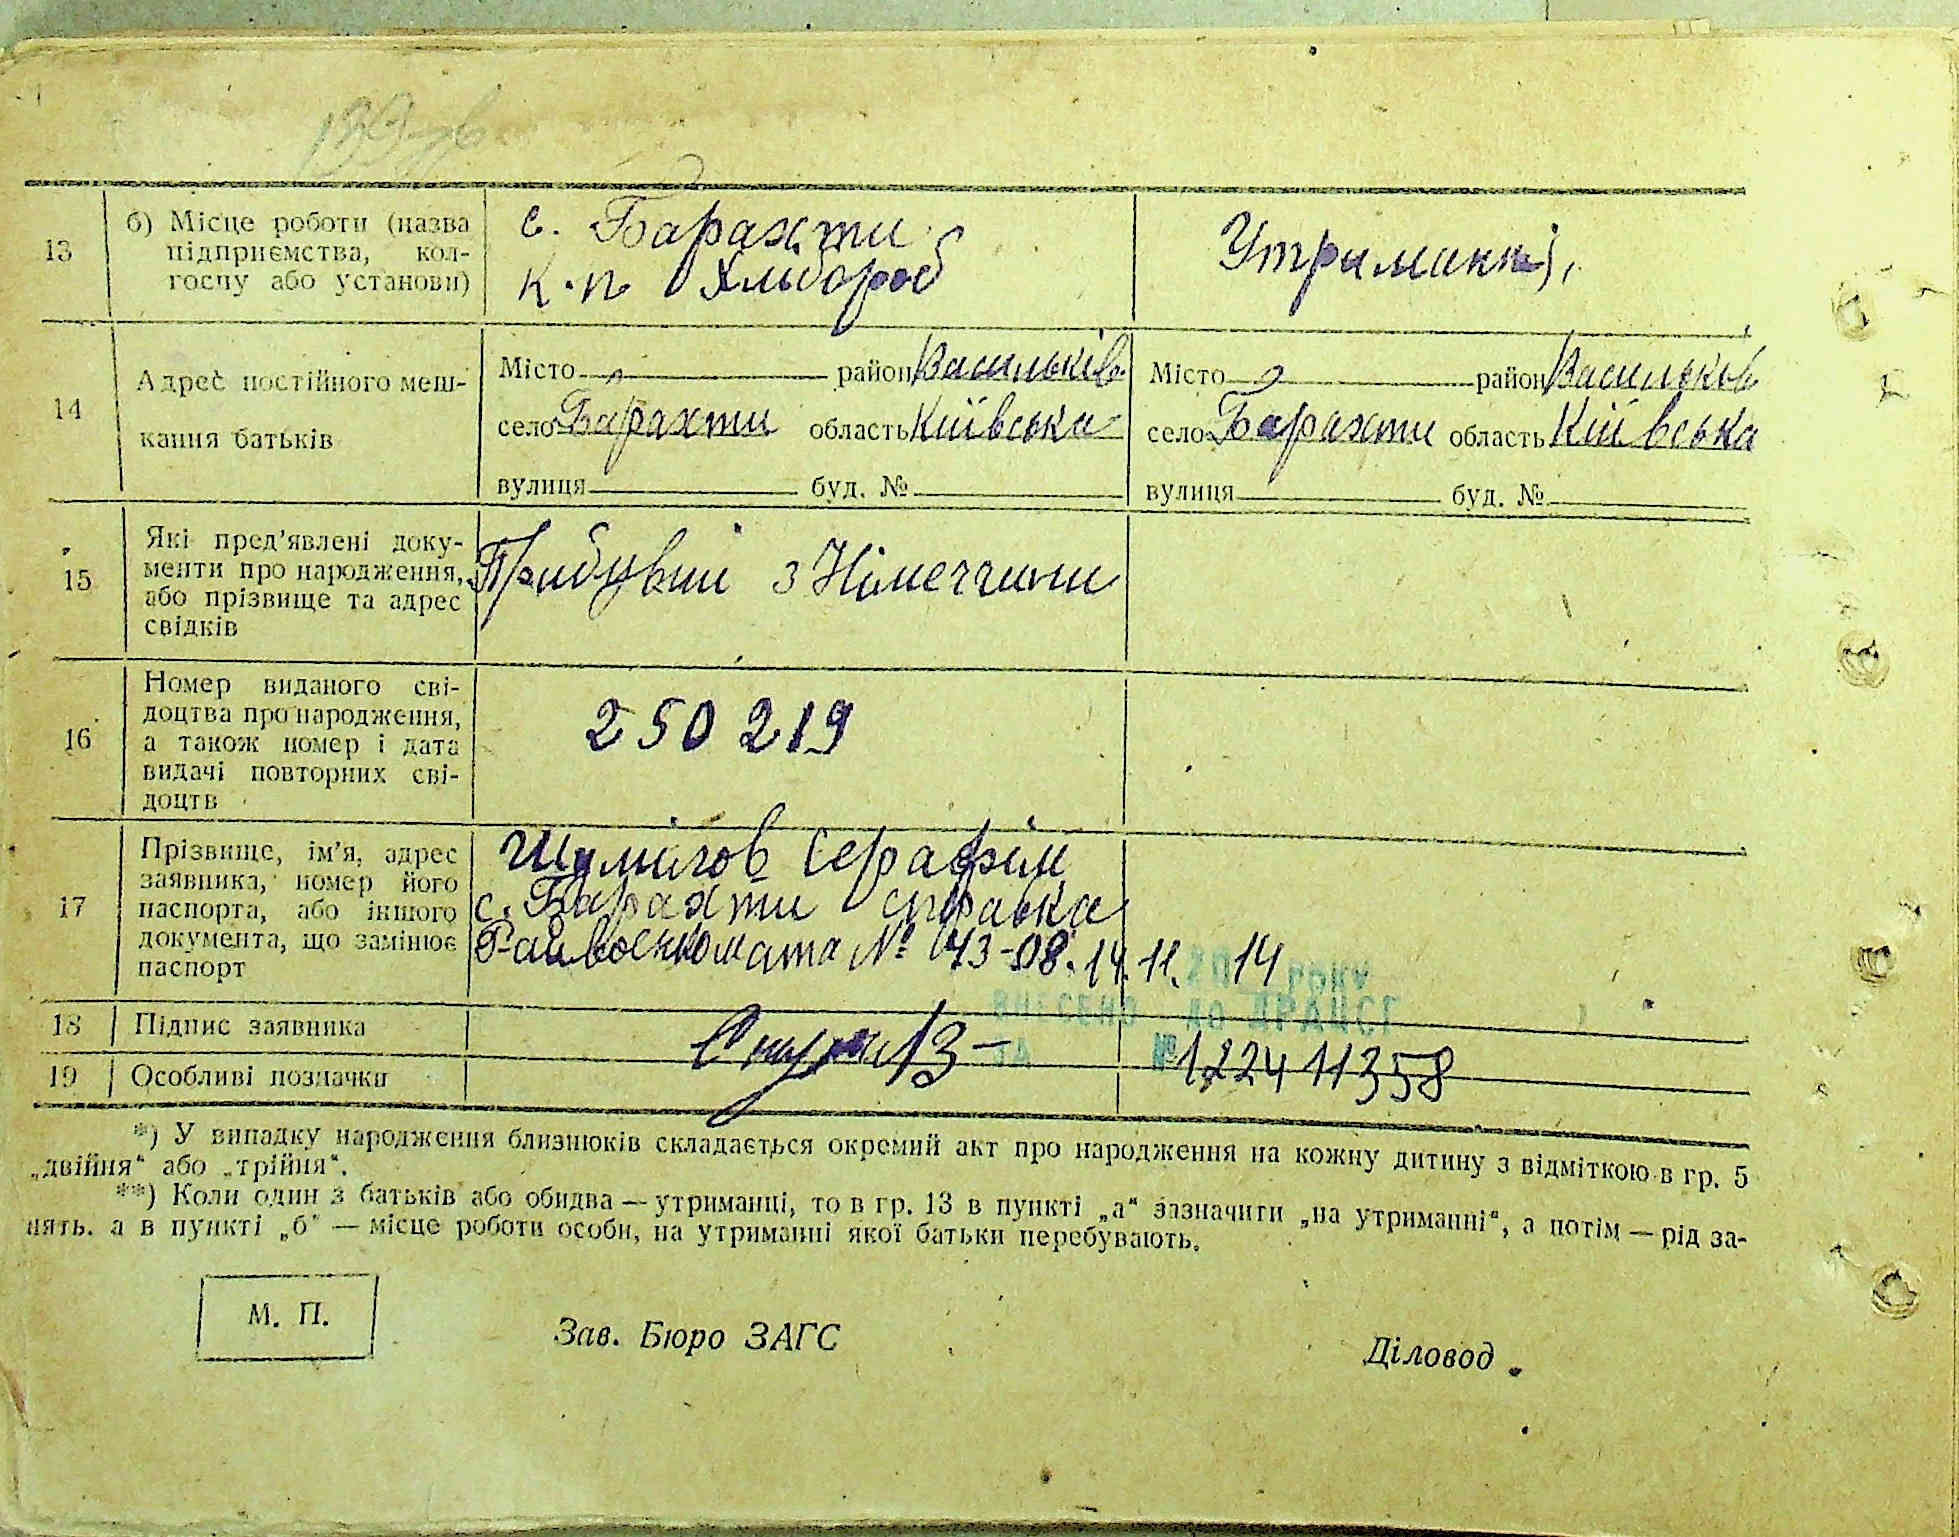 13
б) Місце роботи (назва
підприємства, кол-
госпу або установи)
с. Барахти
к-п Хлібороб
Утриманні,
14
Адрес постійного меш-
кання батьків
Місто район Васильків
село Барахти область Київська
вулиця буд. №
Місто район Васильків
село Барахти область Київська
вулиця буд. №
15
Які пред’явлені доку-
менти про народження,
або прізвище та адрес
свідків
Прибувші з Німеччини
16
Номер виданого сві-
доцтва про народження,
а також номер і дата
видачі повторних сві-
доцтв
250 219
17
Прізвище, ім’я, адрес
заявника, номер його
паспорта, або іншого
документа, що замінює
паспорт
Серафім
с. Барахти справка
Райвоенкомата №
14
року
ВНЕСЕНО до ДРАЦСГ
18 Підпис заявника
за №122411358
19 Особливі позначки
*) У випадку народження близнюків складається окремий акт про народження на кожну дитину з відміткою в гр. 5
„двійня“ або „трійня“.
**) Коли один з батьків або обидва — утриманці, то в гр. 13 в пункті „а“ зазначити „на утриманні“, а потім — рід за-
нять. а в пункті „б“ — місце роботи особи, на утриманні якої батьки перебувають.
М. П.
Зав. Бюро ЗАГС
Діловод